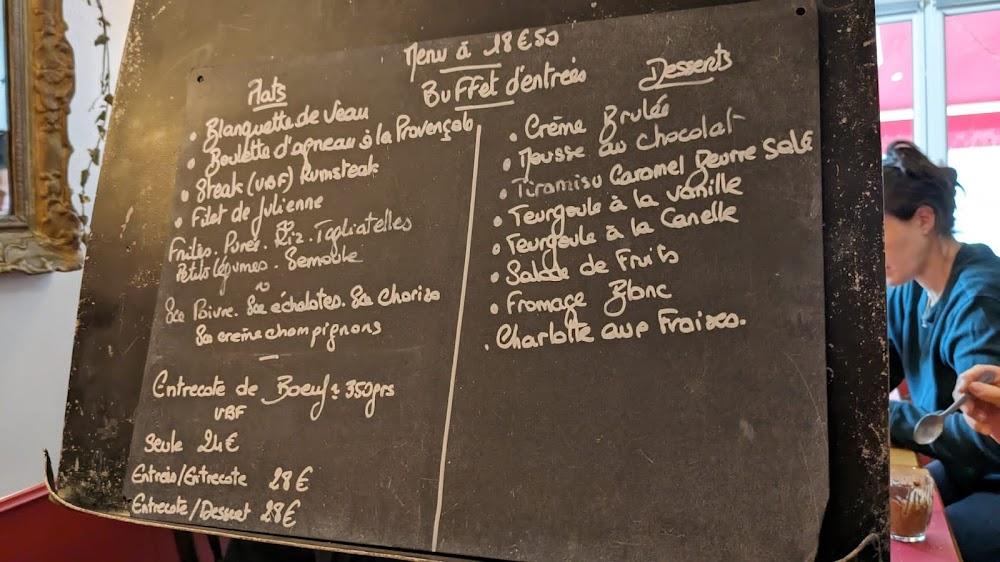 Menu à 18€50
Buffet d'entrées
Plats
• Blanquette de Veau
• Boulette d'agneau à la Provençale
• Steak (VBF) Rumsteak
• Filet de Julienne
Frites. Purée. Riz. Tagliatelles
Petits légumes. Semoule
Sce Poivre. Sce échalotes. Sce Chorizo
Sce crème champignons
Entrecote de Boeuf ± 350grs
VBF
Seule 24€
Entrées/Entrecote 28€
Entrecote/Dessert 28€
Desserts
• Crème Brulée
• Mousse au chocolat
• Tiramisu Caramel Beurre Salé
• Teurgoule à la Vanille
• Teurgoule à la Canelle
• Salade de Fruits
• Fromage Blanc
. Charlotte aux Fraises.